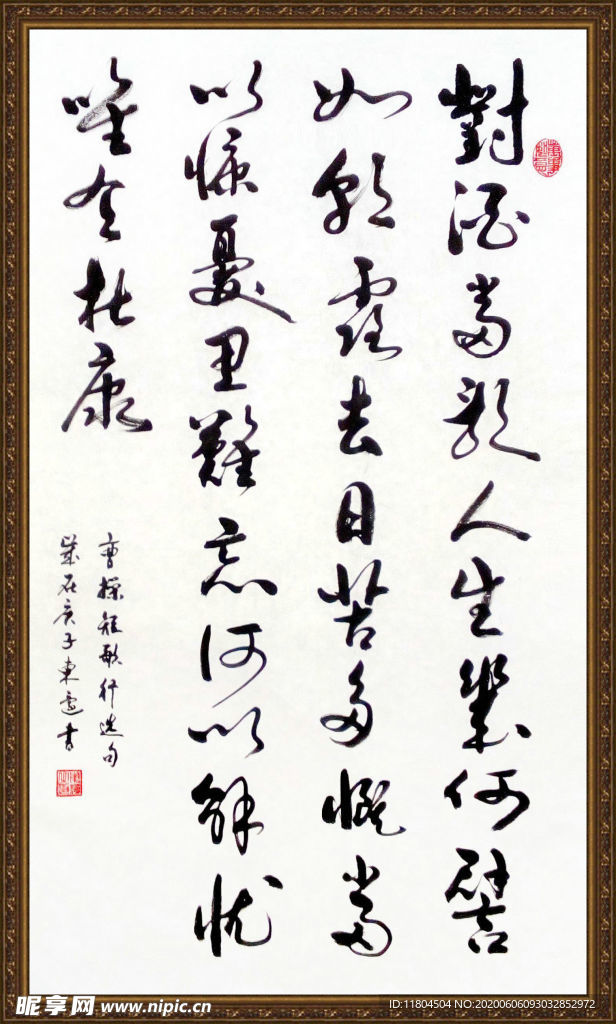 對酒當歌人生幾何譬
如朝露去日苦多慨當
以慷憂思難忘何以解忧
唯有杜康
曹操短歌行选句
歲在庚子東書
昵享网 www.nipic.cn
ID:11804504 NO:20200606093032852972